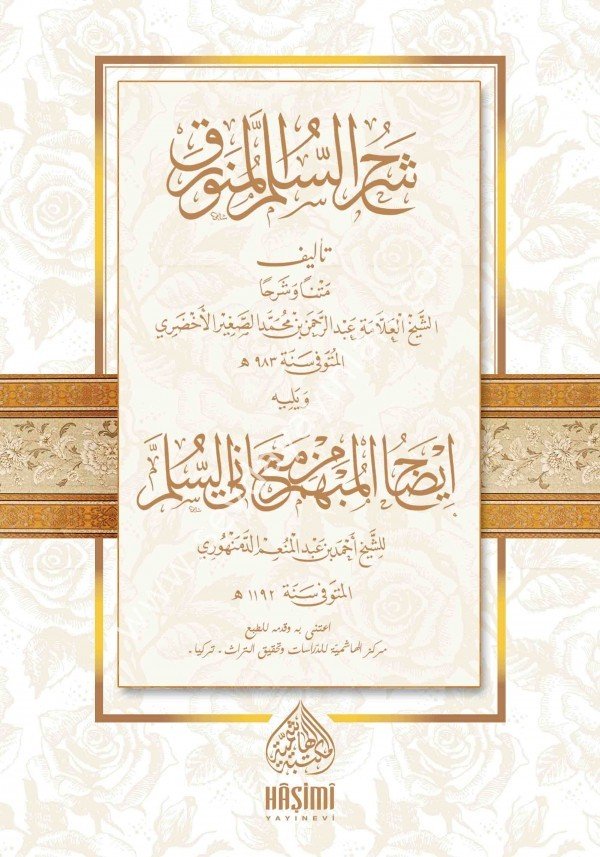 شَرْحُ السُّلَّمِ الْمُنَوْرَقِ
تأليف
مَتْنًا وَشَرْحًا
الشَّيْخ الْعَلَّامَة عَبْدِ الرَّحْمَنِ بْنِ مُحَمَّد الصَّغِيْر الأَخْضَرِي
المُتَوَفَّى سَنَة ٩٨٣ هـ
وَيَلِيهِ
إِيضَاحُ الْمُبْهَمِ مِنْ مَعَانِي السُّلَّمِ
لِلشَّيْخِ أَحْمَد بْنِ عَبْدِ الْمُنْعِمِ الدَّمَنْهُورِي
المُتَوَفَّى سَنَة ١١٩٢ هـ
اعتنى به وقدمه للطبع
مركز الهاشمية للدراسات وتحقيق التراث . تركيا .
المكتبة الهاشمية
HÂŞİMÎ
YAYINEVİ